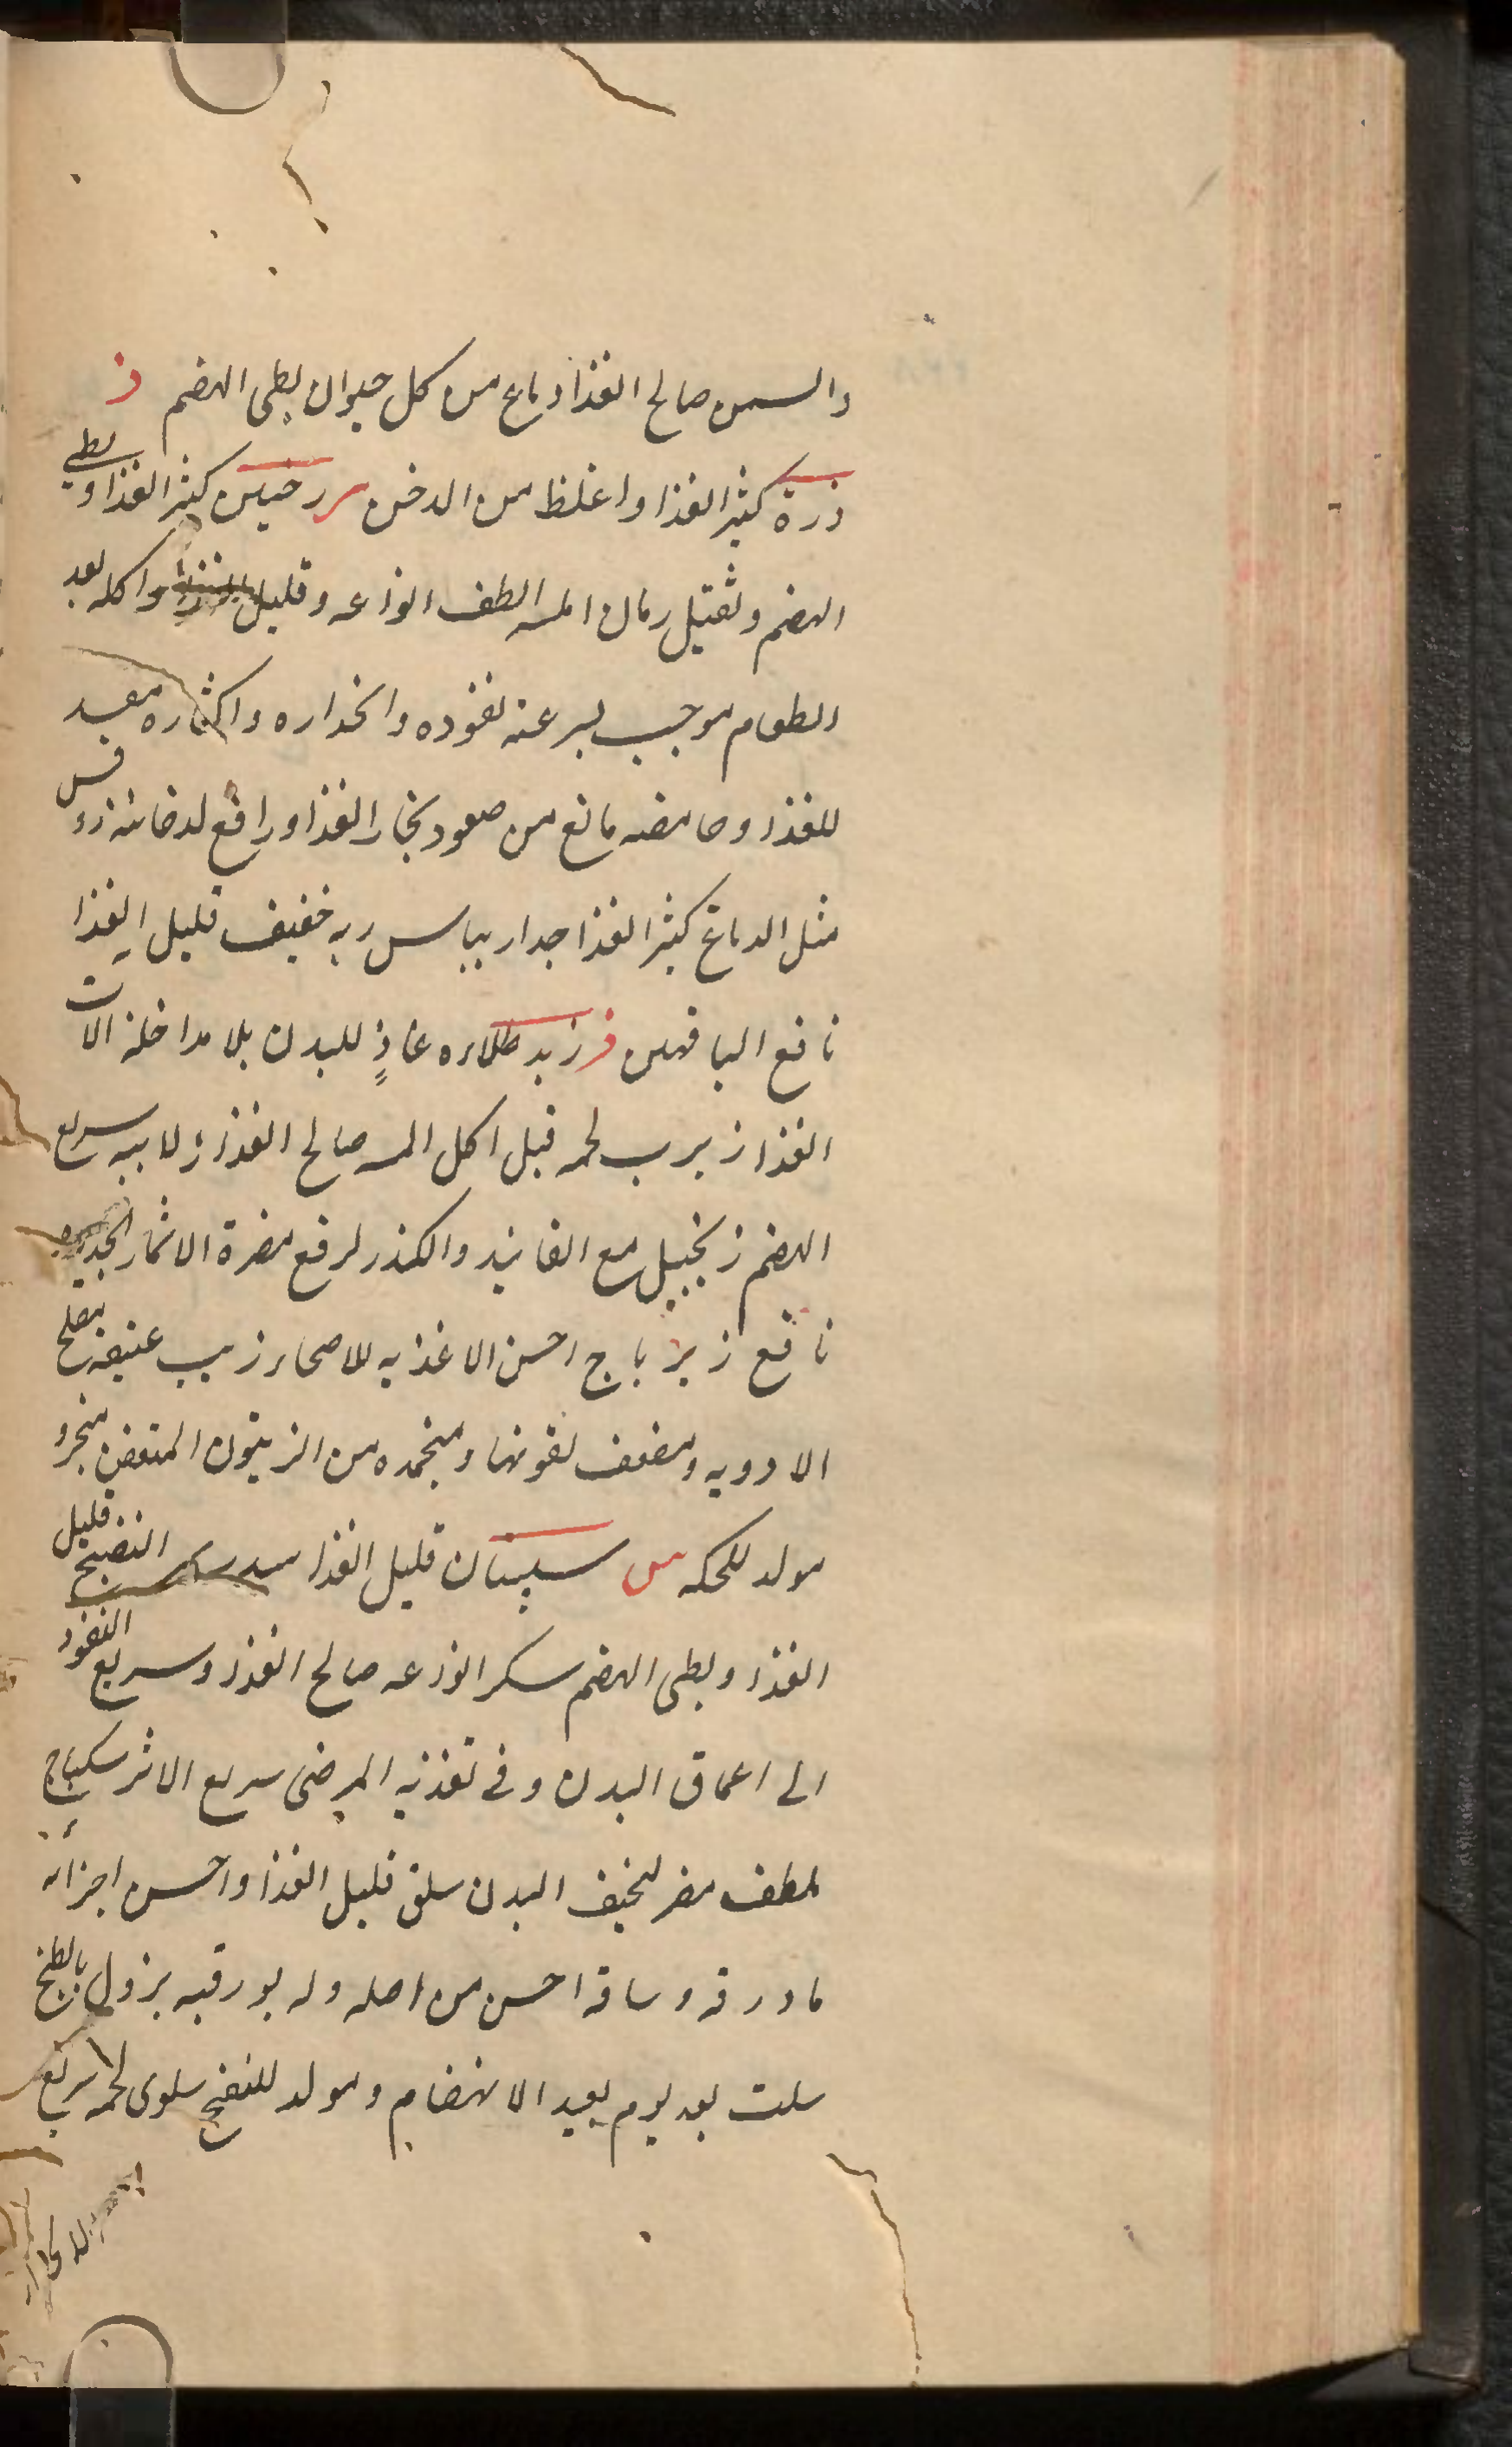 والسمن صالح الغذا دماغ من كل حيوان بطى الهضم ذ
ذرة كثير الغذا واغلظ من الدخن ر رخبين كثير الغذا وبطى
الهضم وثقيل رمان امله الطف انواعه وقليل الغذا واكله بعد
الطعام موجب لسرعة نفوذه وانحداره واكثاره مفسد
للغذا وحامضه مانع من صعود بخار الغذا ورافع لدخانيته روس
مثل الدماغ كثير الغذا جدا ريباس ريه خفيف قليل الغذا
نافع الناقهين ز زبد طلاءه غاذٍ للبدن بلا مداخلة الات
الغذا زبرب لحمه قبل اكل الـمه صالح الغذا زلابيه سريع
الهضم زنجبيل مع الفانيد والكندر لرفع مضرة الاثمار
نافع زيرباج احسن الاغذيه للاصحاء زيت عتيقه مصلح
الادويه ومضعف لقوتها ومتخذه من الزيتون المتعفن
مولد للحكه س سپستان قليل الغذا النضيج قليل
الغذا وبطى الهضم سكر انواعه صالح الغذا وسريع النفوذ
الى اعماق البدن وفى تغذيه المرضى سريع الاثر سكباج
ملطف مضر لنحيف البدن سلق قليل الغذا واحسن اجزائه
ما ورقه وساقه احسن من اصله وله بورقيه يزول بالطبخ
سلت بعد يوم بعيد الانهضام ومولد للنفخ سلوى لحمه سريع